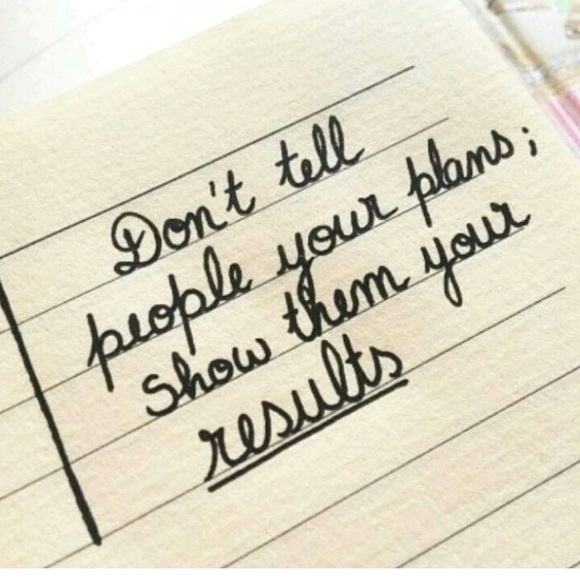 Don't tell
people your plans;
show them your
results